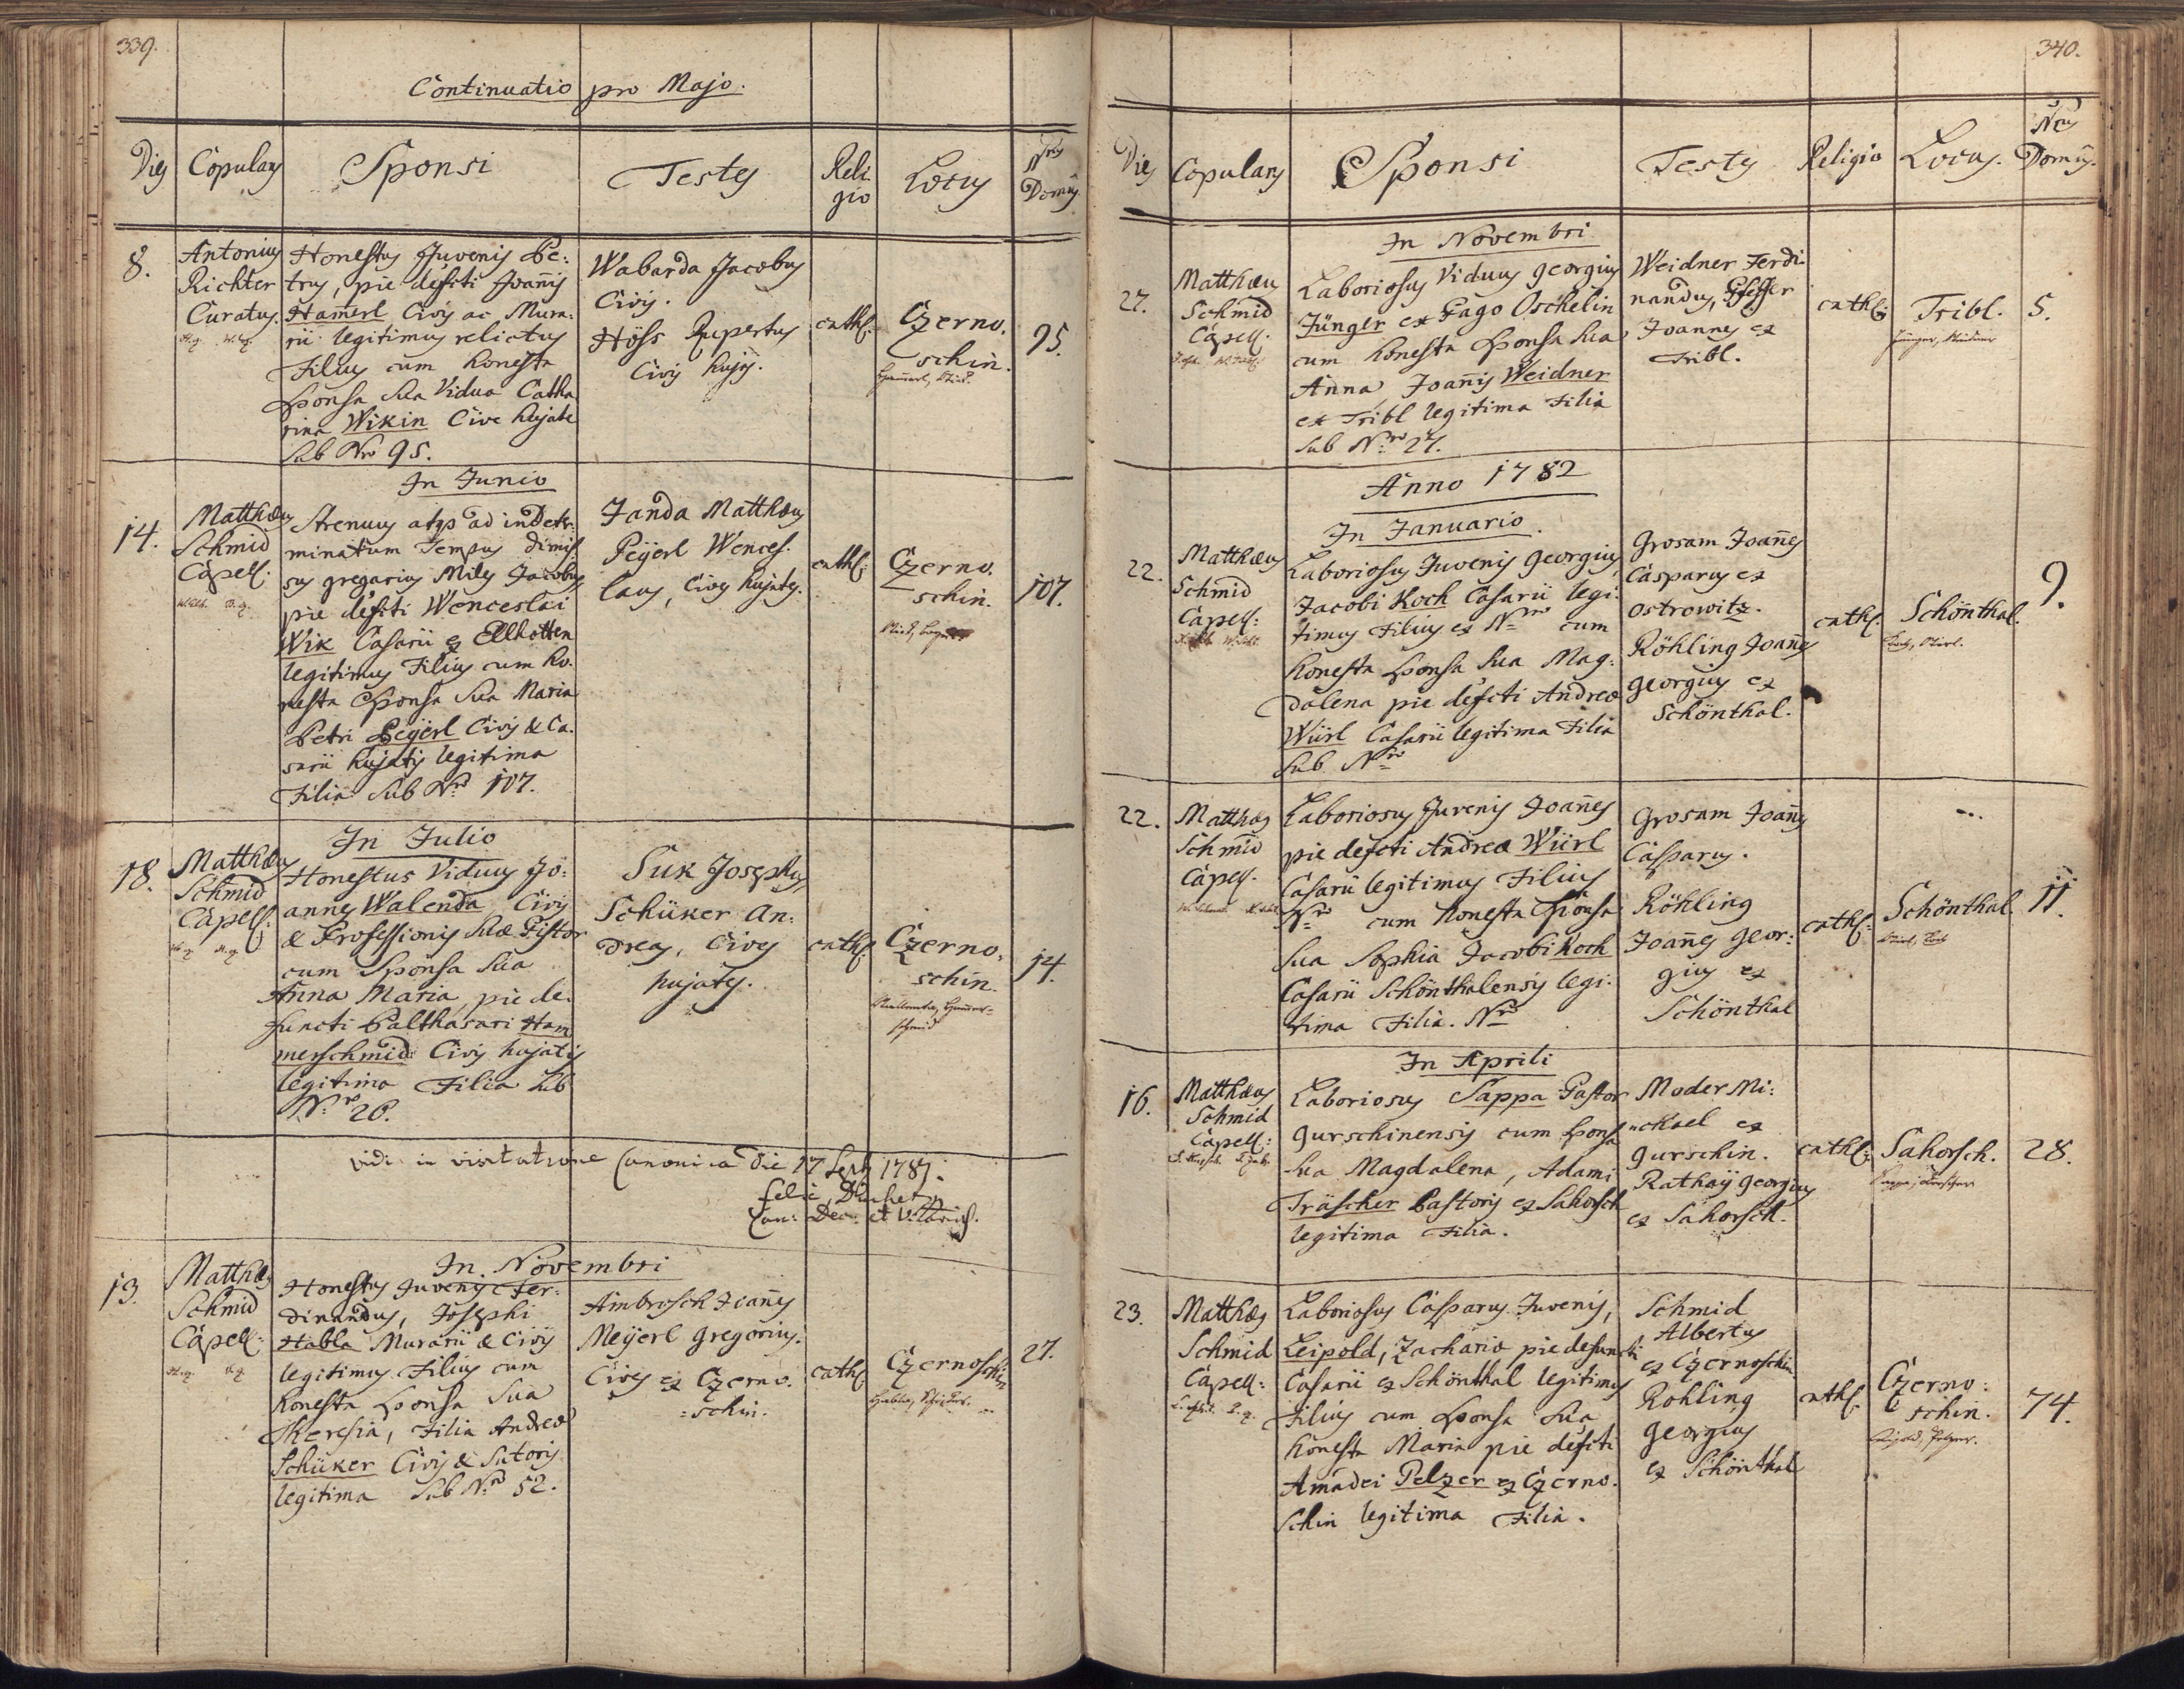 339.
Continuatio pro Majo.
Dies Copulans Sponsi Testes Religio Locus Nrus Domus
8.
Antonius
Richter
Curatus.
Honestus Juvenis Pe:
trus, pie defcti Joañis
Ham̄erl Civis ac Mura:
rii legitimus relictus
Filius cum honesta
Sponsa sua Vidua Catha
rina Wikin Cive hujate
sub Nro 95.
Wabarda Jacobus
Civis.
Höss Rupertus
Civis hujs.
cathl:
Czerno.
schin.
95.
In Junio
14.
Matthæus
Schmid
Capell:
Strenuus atqs ad indeter:
minatum Tempus dimis
sus gregarius Miles Jacobus
pie defcti Wenceslai
Wik Casarii ex Ellhotten
legitimus Filius cum ho.
nesta Sponsa sua Maria
Petri Peÿerl Civis & Ca.
sarii hujatis legitima
Filia sub Nro 107.
Janda Matthæus
Peÿerl Wences.
laus, Cives hujates.
cathl:
Czerno.
schin.
107.
In Julio
18.
Matthæus
Schmid
Capell:
Honestus Viduus Jo:
annes Walenda Civis
& Professionis suæ Pistor
cum Sponsa sua
Anna Maria, pie de.
functi Balthasari Ham
merschmid Civis hujatis
legitima Filia sub
Nro 26.
Suk Josephus
Schüker An:
dreas, Cives
hujates.
cathl:
Czerno.
schin.
14.
vidi in visitatione Canonica die 17 Septb 1781.
Can: Dec: et V:
In Novembri
13.
Matthæs
Schmid
Capell:
Honestus Juvenis Fer:
dinandus, Josephi
Habla Murarii & Civis
legitimus Filius cum
honesta Sponsa sua
Theresia, Filia Andreæ
Schüker Civis & Sutoris
legitima sub Nro 52.
Ambrosch Joañes
Meÿerl Gregorius.
Cives ex Czerno.
=schin.
cathl
Czernoschin
27.
340.
Dies Copulans Sponsi Testes Religio Locus. Nrus Domus.
In Novembri
27.
Matthæus
Schmid
Capell.
Laboriosus Viduus Georgius
Jünger ex Pago Oschelin
cum honesta Sponsa sua
Anna Joañis Weidner
ex Tribl legitima Filia
sub Nro 27.
Weidner Ferdi.
nandus,
Joannes ex
Tribl.
cathl:
Tribl.
Jünger, Weidner
5.
Anno 1782
In Januario.
22.
Matthæus
Schmid
Capell:
Laboriosus Juvenis Georgius,
Jacobi Koch Casarii legi.
timus Filius ex Nro cum
honesta Sponsa sua Mag:
dalena pie defcti Andreæ
Würl Casarii legitima Filia
sub Nro
Grosam Joañes
Casparus ex
Ostrowitz.
Röhling Joañes
Georgius ex
Schönthal.
cathl:
Schönthal.
9.
22.
Matthæs
Schmid
Capell.
Laboriosus Juvenis Joañes
pie defcti Andreæ Würl
Casarii legitimus Filius
Nro cum honesta Sponsa
sua Sophia Jacobi Koch
Casarii Schönthalensis legi:
tima Filia. Nro
Grosam Joañes
Casparus.
Röhling
Joañes Geor:
gius ex
Schönthal
cathl:
Schönthal.
11.
In Aprili
16.
Matthæus
Schmid
Capell:
Laboriosus Sappa Pastor
Gurschinensis cum Sponsa
sua Magdalena, Adami
Träscher Pastoris ex Sahorsch
legitima Filia.
Moder Mi:
chael ex
Gurschin.
Rathaÿ Georgius
ex Sahorsch.
cathl:
Sahorsch.
28.
23.
Matthæs
Schmid
Capell:
Laboriosus Casparus Juvenis,
Leipold, Zachariæ pie defuncti
Casarii ex Schönthal legitimus
Filius cum Sponsa sua
honesta Maria pie defcti
Amadei Pelzer ex Czerno.
schin legitima Filia.
Schmid
Albertus
ex Czernoschin
Rohling
Georgius
ex Schönthal
cathl.
Czerno:
schin.
Leipold, Pelzer.
74.